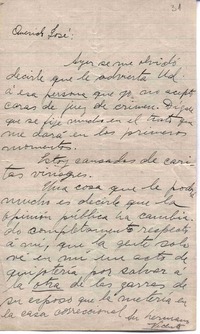 21
Querido José:
Ayer se me olvidó
decirle que le advierta Ud.
a esa persona que yo no acepto
cosas de juez de crimen. Dígale
que se fije mucho en el trato que
me dará en los primeros
momentos.
Estoy cansados de cari-
tas vinagres.
Una cosa que le
mucho es decirle que la
opinión pública ha cambia-
do completamente respecto
a mí, que la gente solo
ve en mi un acto de
quijotería por salvar a
la otra de las garras de
su esposo que la metería en
la casa correccional. Su hermano